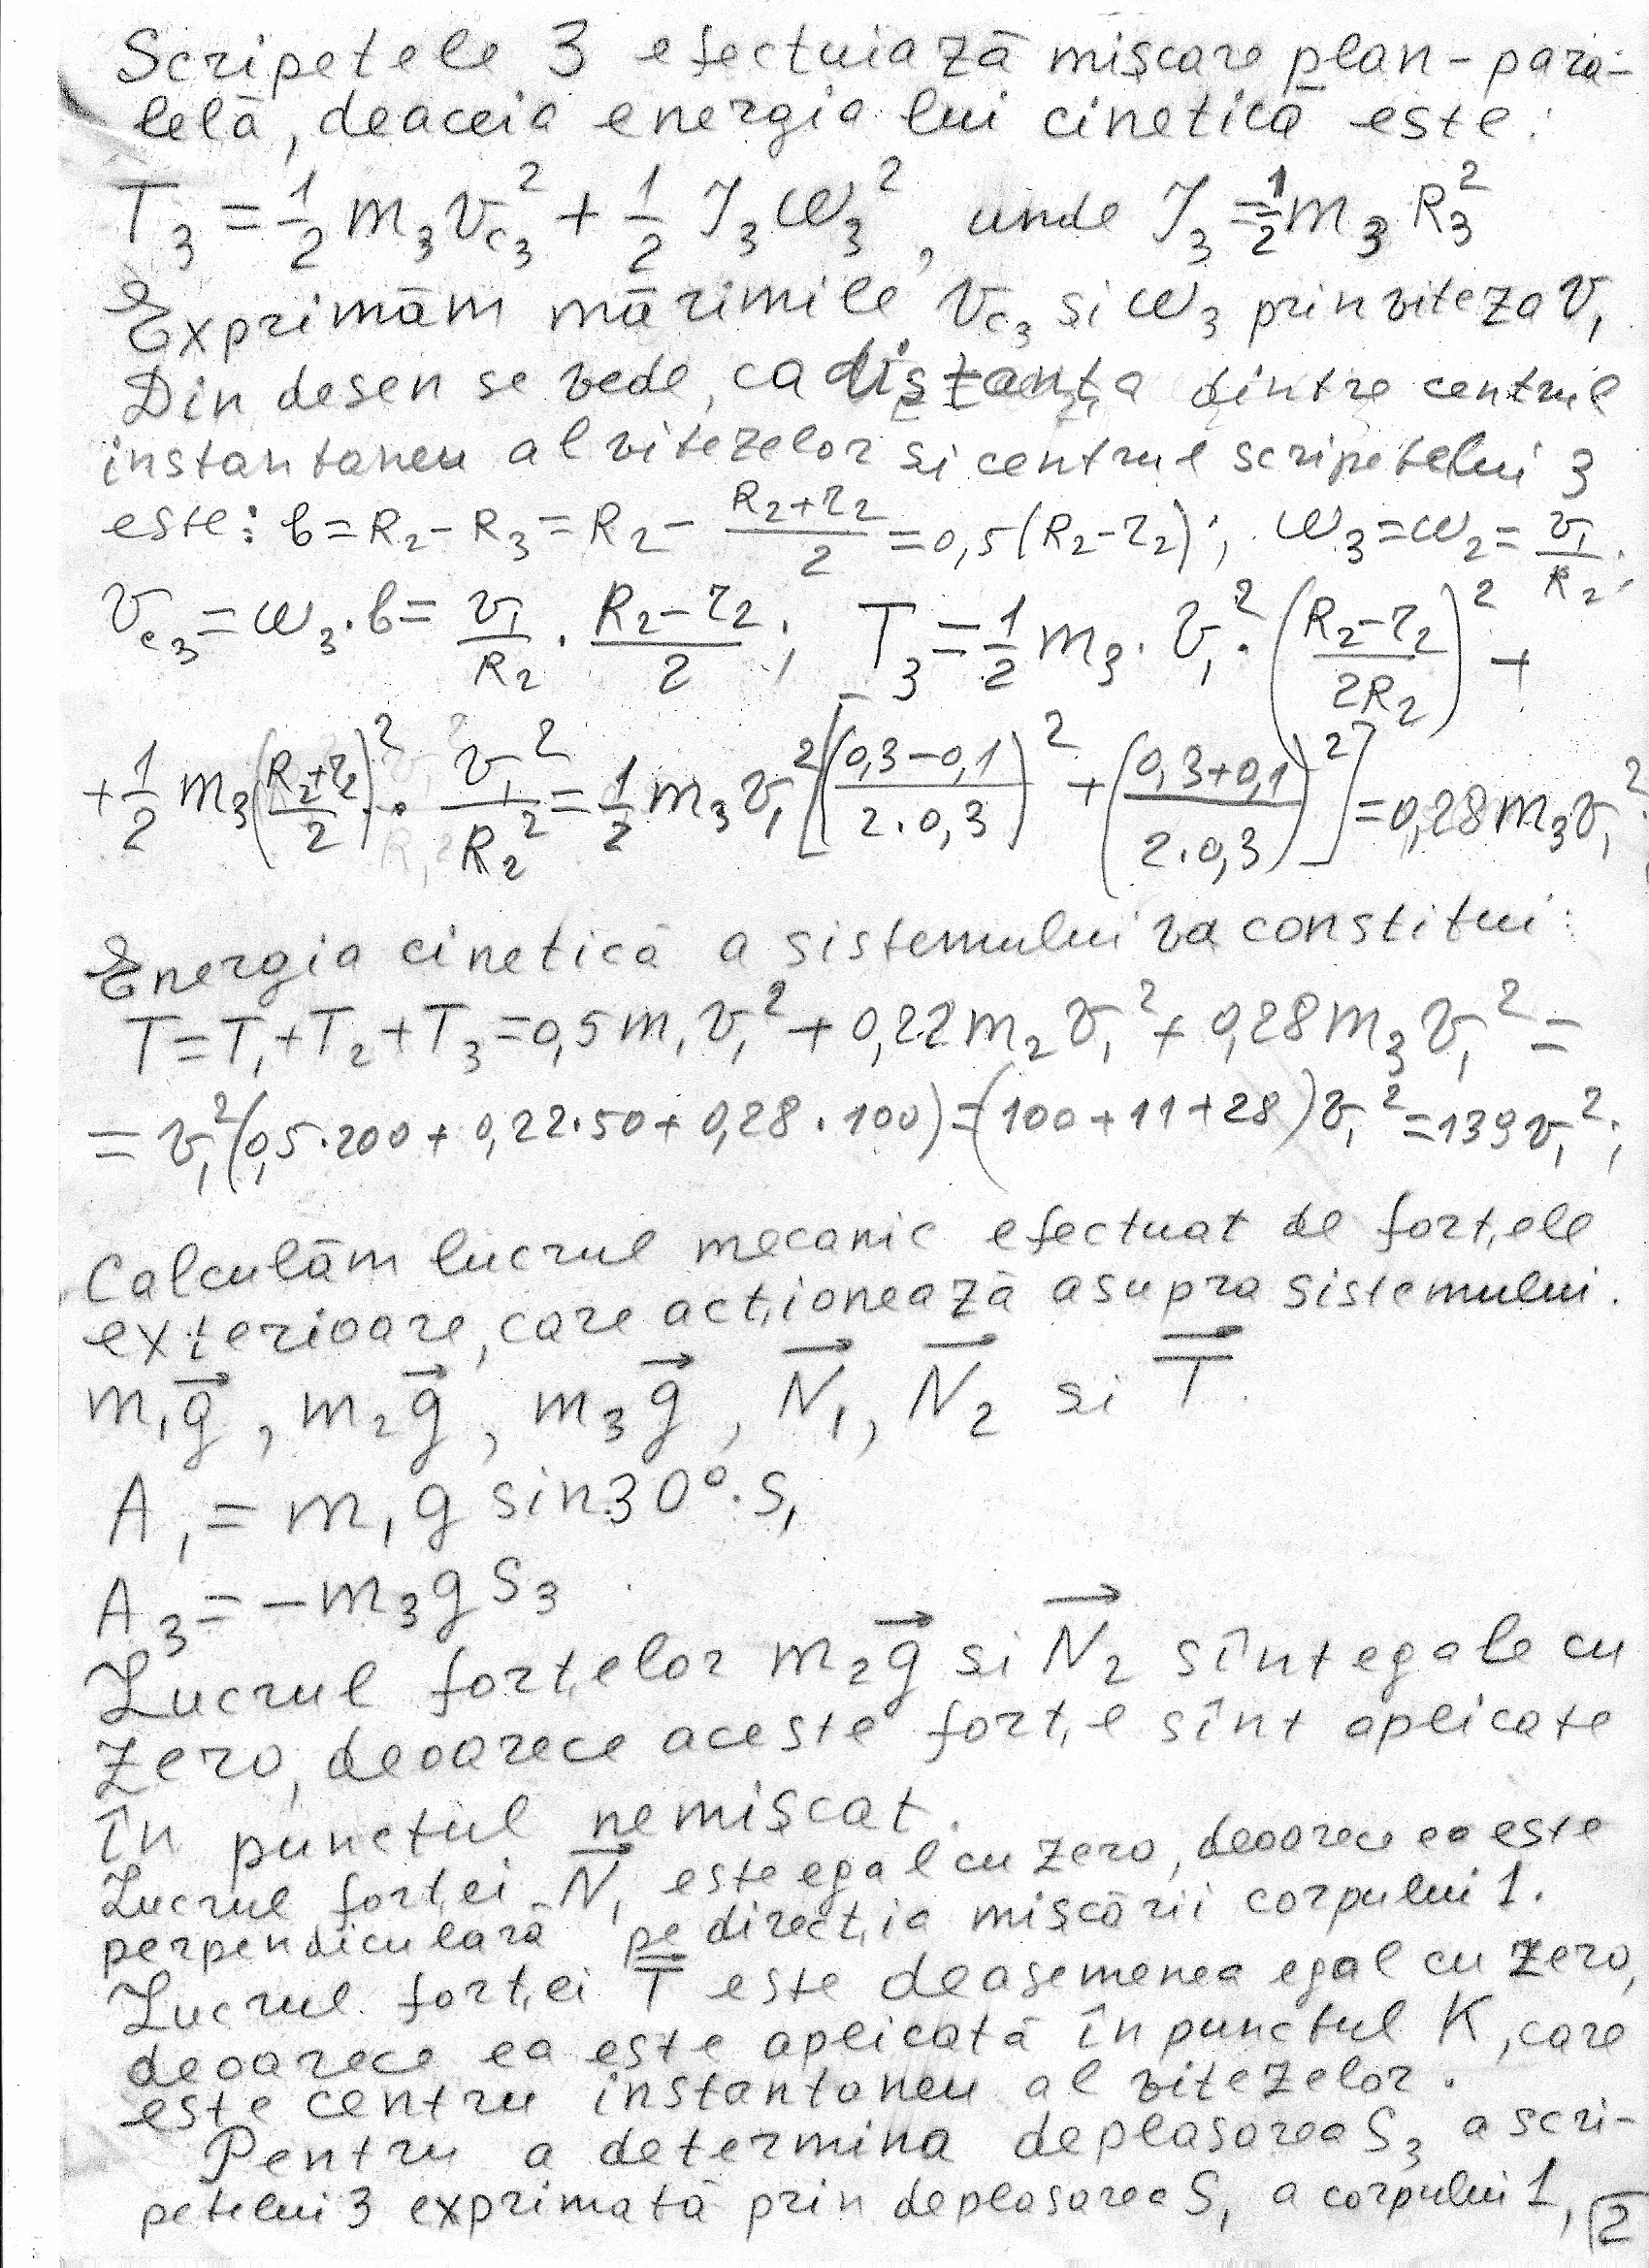 Scripetele 3 efectuiază mișcare plan-para-
lelă, deaceia energia lui cinetică este:
T₃ = 1/2 m₃v_c₃² + 1/2 J₃ω₃², unde J₃ = 1/2 m₃R₃²
Exprimăm mărimile v_c₃ si ω₃ prin viteza v₁
Din desen se vede, ca distanța dintre centrul
instantaneu al vitezelor si centrul scripetelui 3
este: b = R₂ - R₃ = R₂ - (R₂+r₂)/2 = 0,5(R₂-r₂); ω₃ = ω₂ = v₁/R₂;
v_c₃ = ω₃·b = v₁/R₂ · (R₂-r₂)/2; T₃ = 1/2 m₃·v₁²·((R₂-r₂)/2R₂)² +
+ 1/2 m₃((R₂+r₂)/2)² · v₁²/R₂² = 1/2 m₃v₁²[((0,3-0,1)/2·0,3)² + ((0,3+0,1)/2·0,3)²] = 0,28m₃v₁²;
Energia cinetică a sistemului va constitui:
T = T₁+T₂+T₃ = 0,5m₁v₁² + 0,22m₂v₁² + 0,28m₃v₁² =
= v₁²(0,5·200 + 0,22·50 + 0,28·100) = (100+11+28)v₁² = 139v₁²;
Calculăm lucrul mecanic efectuat de forțele
exterioare, care acționează asupra sistemului.
m₁g⃗, m₂g⃗, m₃g⃗, N⃗₁, N⃗₂ si T⃗.
A₁ = m₁g sin30°·S₁
A₃ = -m₃gS₃
Lucrul forțelor m₂g⃗ si N⃗₂ sînt egale cu
zero, deoarece aceste forțe sînt aplicate
în punctul nemișcat.
Lucrul forței N⃗₁ este egal cu zero, deoarece ea este
perpendiculară pe direcția mișcării corpului 1.
Lucrul forței T⃗ este deasemenea egal cu zero,
deoarece ea este aplicată în punctul K, care
este centru instantaneu al vitezelor.
Pentru a determina deplasarea S₃ a scri-
petelui 3 exprimată prin deplasarea S₁ a corpului 1,
2